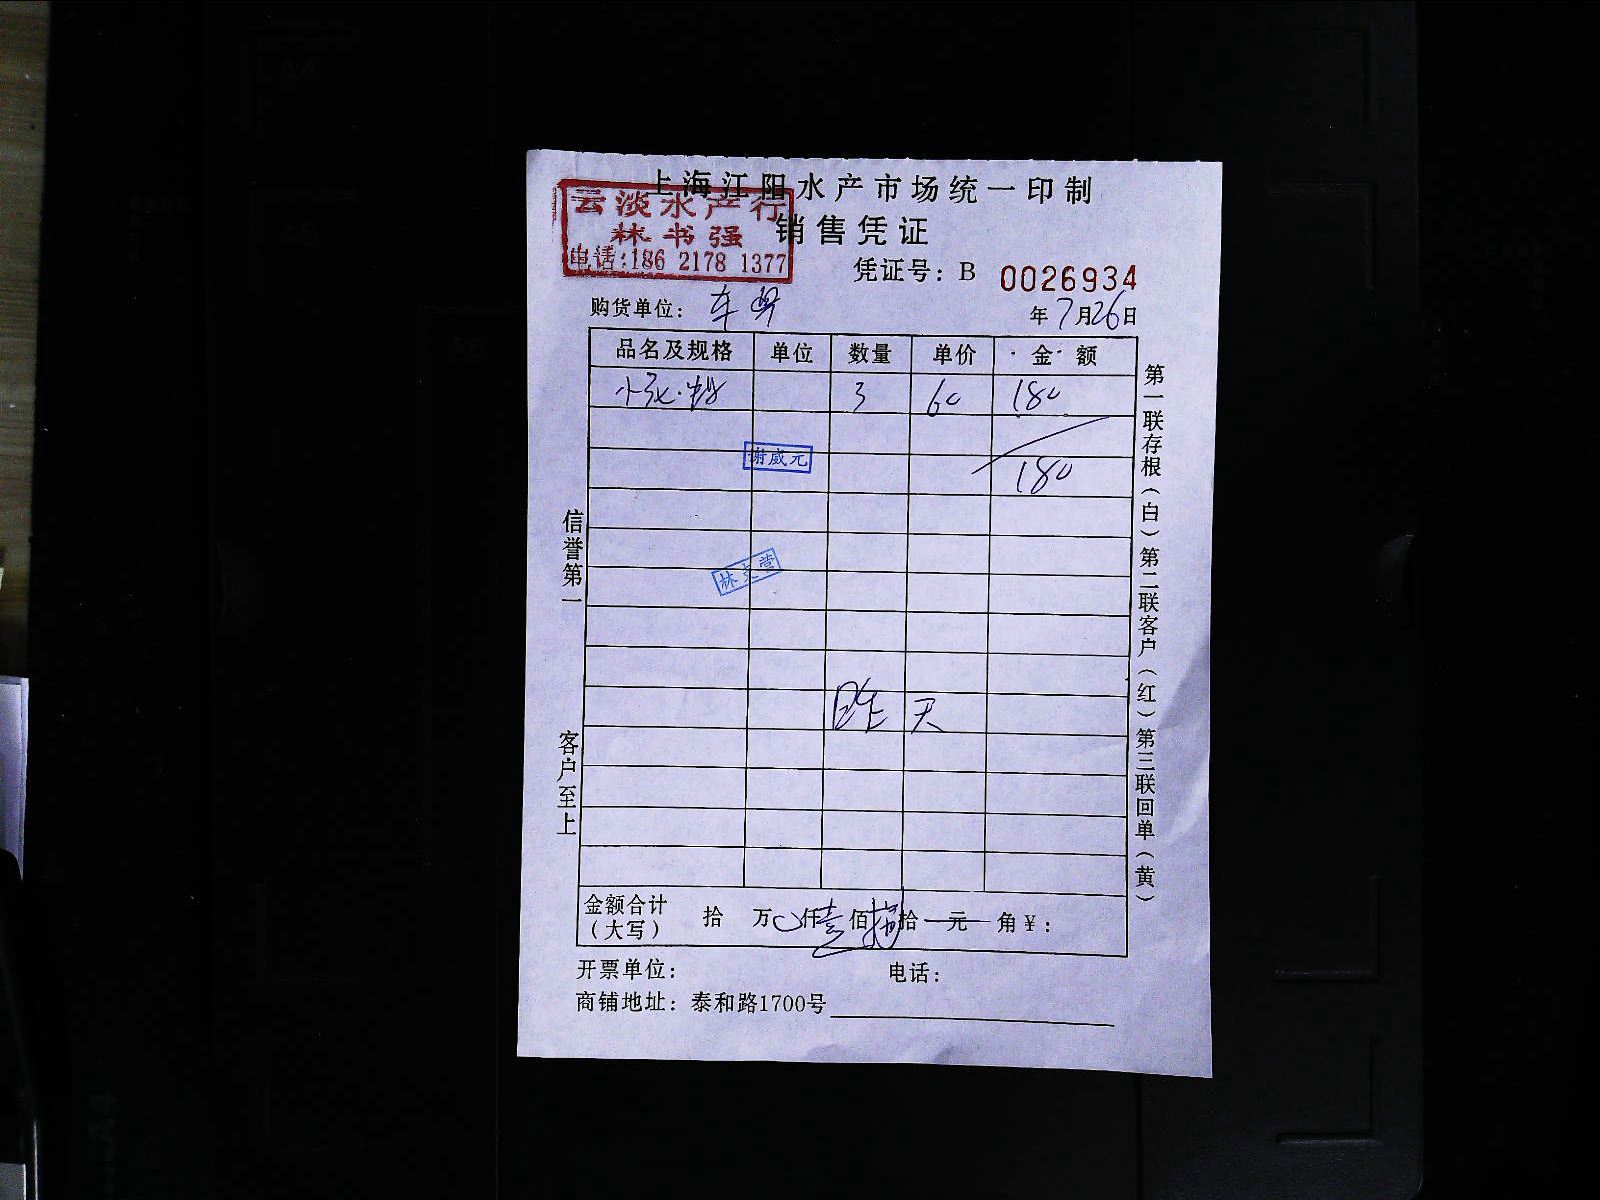 上海江阳水产市场统一印制
云淡水产行
林书强
电话:186 2178 1377
销售凭证
凭证号: B 0026934
购货单位: 车
年7月26日
品名及规格 单位 数量 单价 金额
小 3 60 180
谢威元
180
林 营
昨天
信誉第一
客户至上
第一联存根(白)第二联客户(红)第三联回单(黄)
金额合计(大写) 拾 万 0 仟 壹 佰 捌 拾 元 角 ¥:
开票单位: 电话:
商铺地址: 泰和路1700号